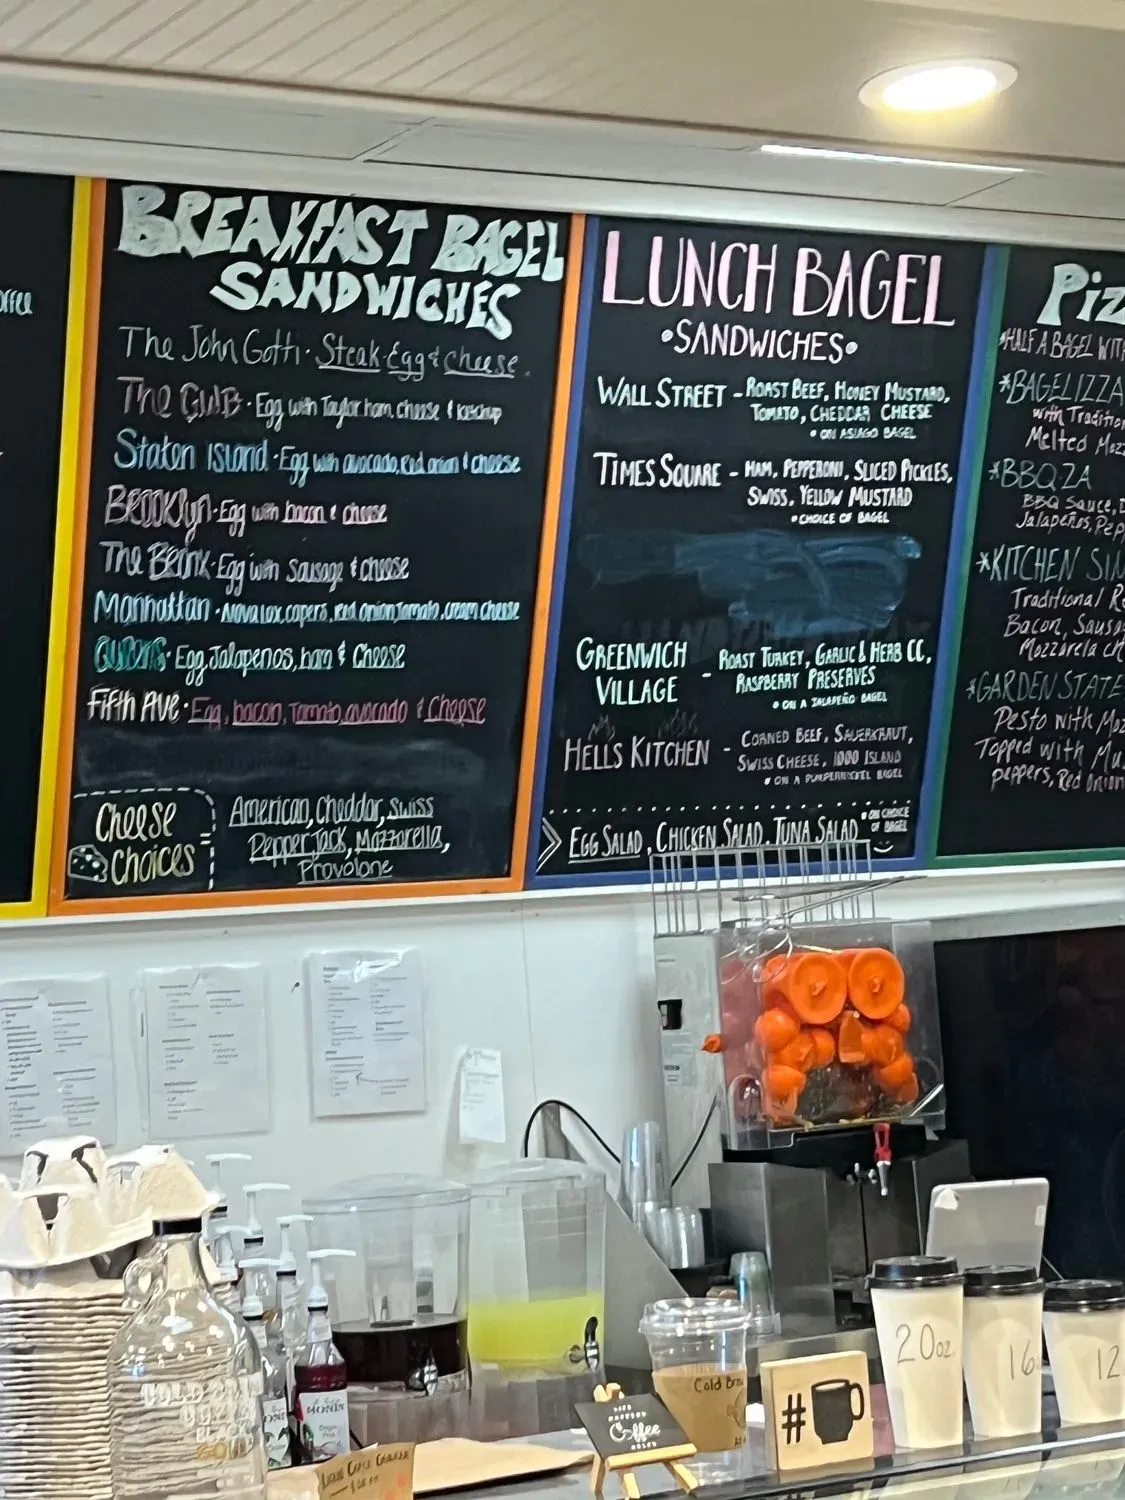 BREAKFAST BAGEL
SANDWICHES
The John Gotti · Steak Egg & cheese.
Egg with Taylor ham, cheese & ketchup
Staten Island · Egg with avocado, Red onion & cheese
Brooklyn · Egg with bacon & cheese
The Bronx · Egg with Sausage & cheese
Manhattan · Nova lox, capers, red onion, Tomato, cream cheese
Queens · Egg, Jalapenos, ham & Cheese
Fifth Ave · Egg, bacon, Tomato, avocado & Cheese
Cheese
Choices
American, Cheddar, Swiss
Pepper Jack, Mozzarella,
Provolone
LUNCH BAGEL
•SANDWICHES•
WALL STREET - ROAST BEEF, HONEY MUSTARD,
TOMATO, CHEDDAR CHEESE
• ON ASIAGO BAGEL
TIMES SQUARE - HAM, PEPPERONI, SLICED PICKLES,
SWISS, YELLOW MUSTARD
• CHOICE OF BAGEL
GREENWICH
VILLAGE - ROAST TURKEY, GARLIC & HERB CC,
RASPBERRY PRESERVES
• ON A JALAPEÑO BAGEL
HELLS KITCHEN - CORNED BEEF, SAUERKRAUT,
SWISS CHEESE, 1000 ISLAND
• ON A BAGEL
EGG SALAD, CHICKEN SALAD, TUNA SALAD
• ON CHOICE
OF BAGEL
Piz
*HALF A BAGEL WIT
*BAGELIZZA
with Tradition
Melted Moz
*BBQ-ZA
BBQ Sauce,
Jalapeños, Pep
*KITCHEN SIN
Traditional R
Bacon, Sausa
Mozzarela ch
*GARDEN STATE
Pesto with Moz
Topped with Mu
peppers, Red Onion
MONIN
Cold Brew
Coffee
#
20oz
16
12